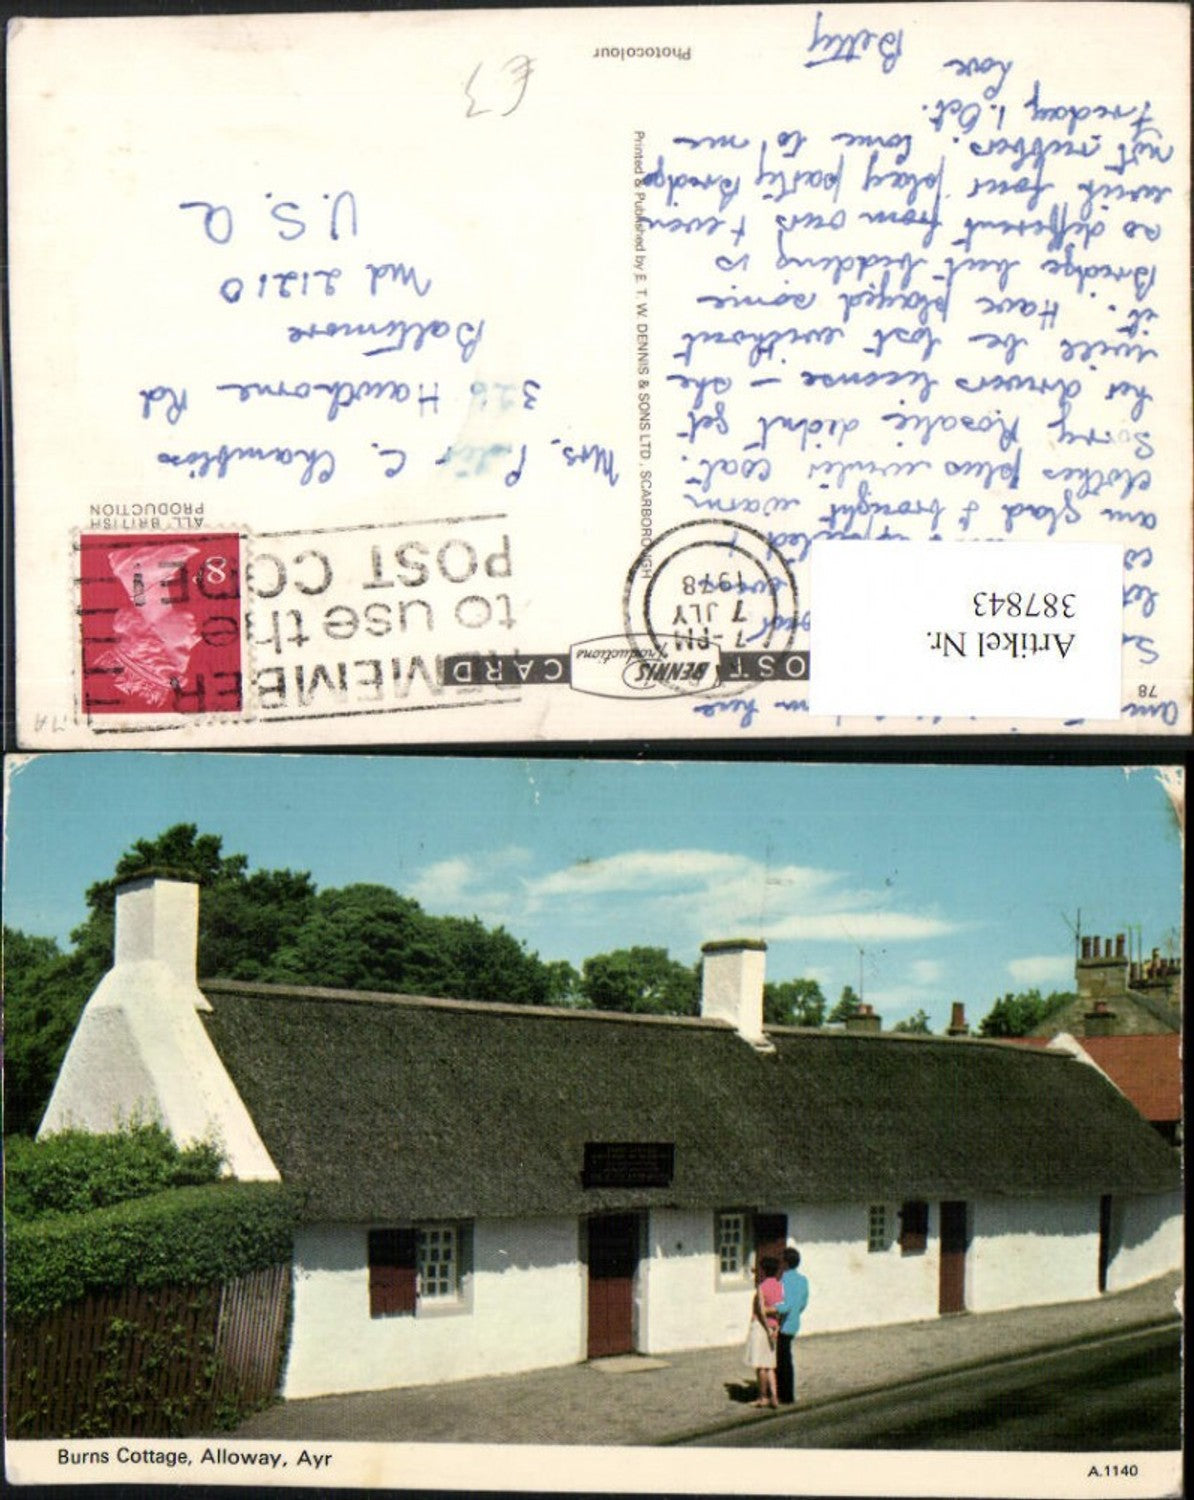 POST CARD
DENNIS
Productions
REMEMBER
to use the
POST CODE
7-PM
7 JLY
1978
8P
ALL BRITISH
PRODUCTION
Artikel Nr.
387843
78
am here
am glad I brought warm
clothes plus winter coat.
Sorry Rosalie didn't get
her drivers license - she
will be lost without
it. Have played some
Bridge but bidding is
so different from ours & even
with four play party Bridge
not rubbers. Come to me
Friday 1. Oct.
Love
Betty
Mrs. C. Chambliss
Hawthorne Rd
Baltimore
Md 21210
U.S.A
Printed & Published by E. T. W. DENNIS & SONS LTD., SCARBOROUGH
Photocolour
£3
Burns Cottage, Alloway, Ayr
A.1140